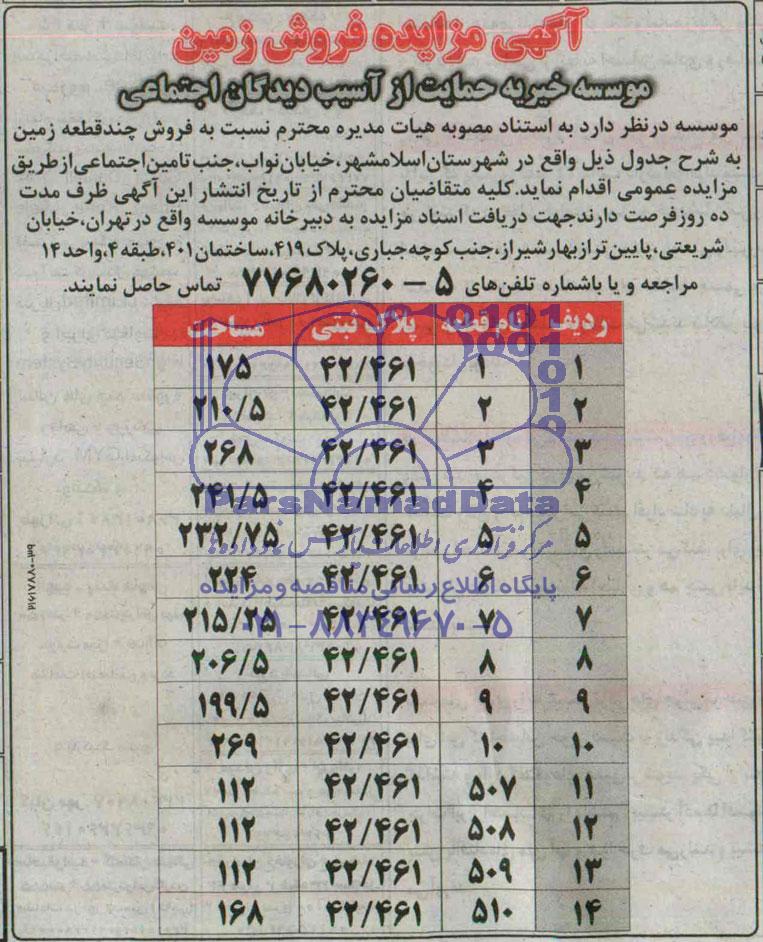 آگهی مزایده فروش زمین
موسسه خیریه حمایت از آسیب دیدگان اجتماعی
موسسه درنظر دارد به استناد مصوبه هیات مدیره محترم نسبت به فروش چندقطعه زمین
به شرح جدول ذیل واقع در شهرستان اسلامشهر، خیابان نواب، جنب تامین اجتماعی از طریق
مزایده عمومی اقدام نماید. کلیه متقاضیان محترم از تاریخ انتشار این آگهی ظرف مدت
ده روز فرصت دارند جهت دریافت اسناد مزایده به دبیرخانه موسسه واقع در تهران، خیابان
شریعتی، پایین تر از بهار شیراز، جنب کوچه جباری، پلاک ۴۱۹، ساختمان ۴۰۱، طبقه ۴، واحد ۱۴
مراجعه و یا باشماره تلفن‌های ۵ - ۷۷۶۸۰۲۶۰ تماس حاصل نمایند.
ردیف قطعه پلاک ثبتی مساحت
۱ ۱ ۴۲/۴۶۱ ۱۷۵
۲ ۲ ۴۲/۴۶۱ ۲۱۰/۵
۳ ۳ ۴۲/۴۶۱ ۲۶۸
۴ ۴ ۴۲/۴۶۱ ۲۴۱/۵
۵ ۵ ۴۲/۴۶۱ ۲۳۲/۷۵
۶ ۶ ۴۲/۴۶۱ ۲۲۴
۷ ۷ ۴۲/۴۶۱ ۲۱۵/۲۵
۸ ۸ ۴۲/۴۶۱ ۲۰۶/۵
۹ ۹ ۴۲/۴۶۱ ۱۹۹/۵
۱۰ ۱۰ ۴۲/۴۶۱ ۲۶۹
۱۱ ۵۰۷ ۴۲/۴۶۱ ۱۱۲
۱۲ ۵۰۸ ۴۲/۴۶۱ ۱۱۲
۱۳ ۵۰۹ ۴۲/۴۶۱ ۱۱۲
۱۴ ۵۱۰ ۴۲/۴۶۱ ۱۶۸
ParsNamadData
مرکز فرآوری اطلاعات پارس نماد داده‌ها
پایگاه اطلاع رسانی مناقصه و مزایده
۰۲۱-۸۸۳۴۹۶۷۰-۵